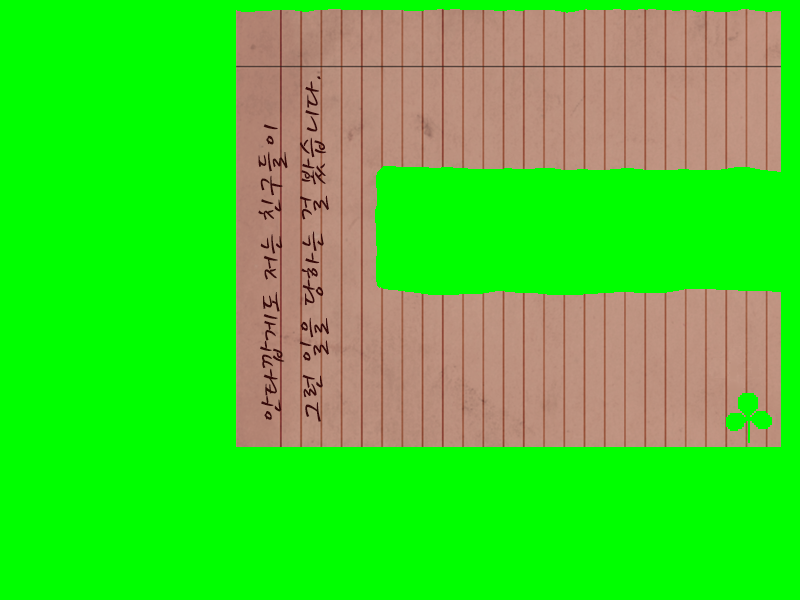 안타깝게도 저는 친구들이
그런 일을 당하는 걸 봤습니다.